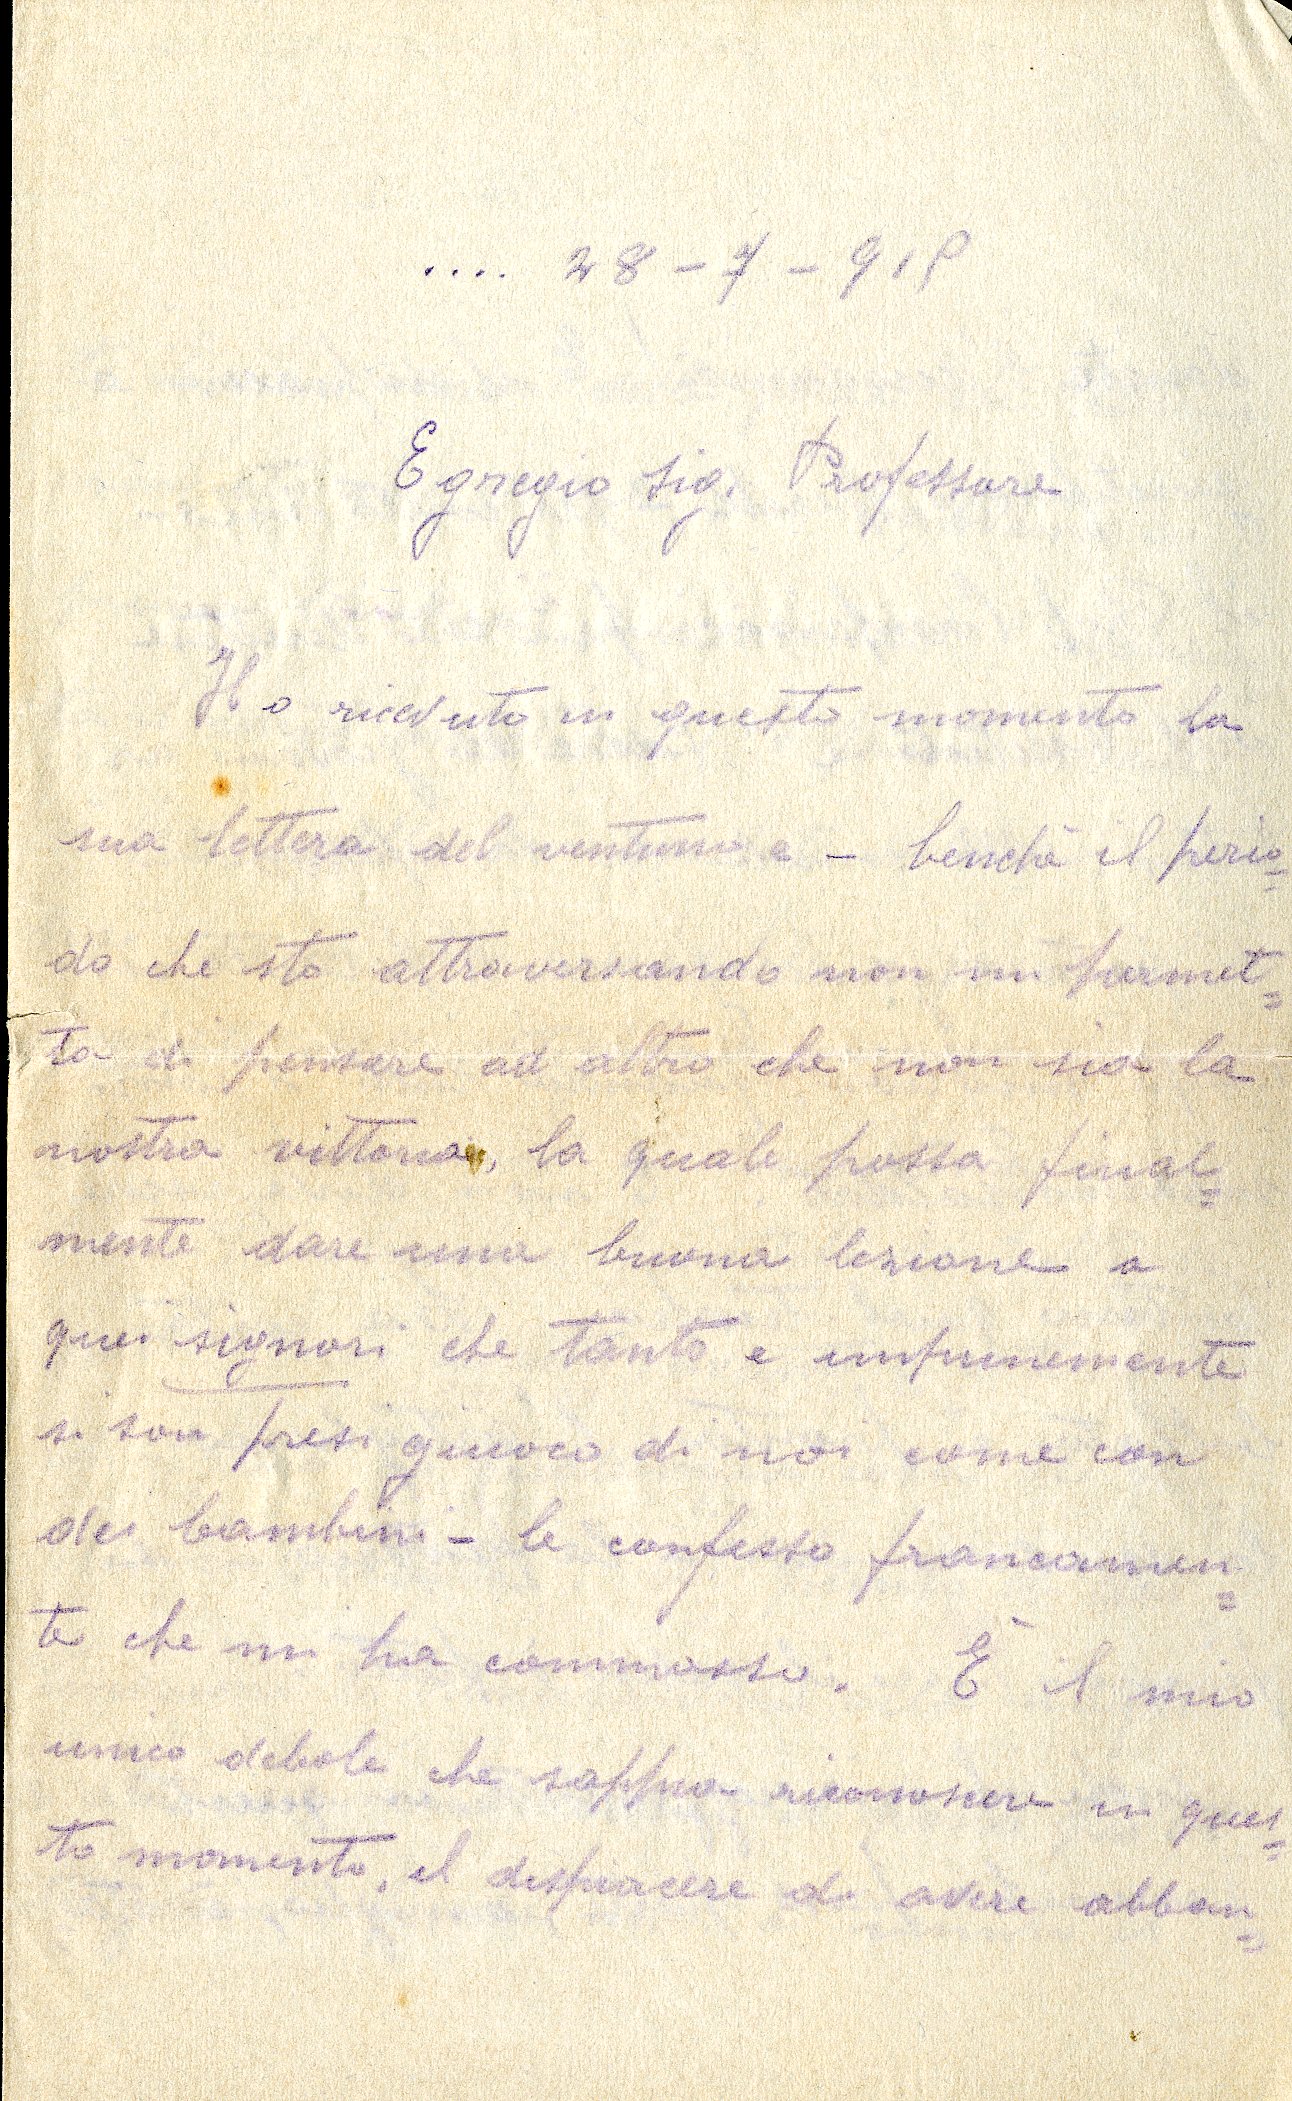 .... 28 - 7 - 918
Egregio sig. Professore
Ho ricevuto in questo momento la
sua lettera del ventuno e - benchè il perio=
do che sto attraversando non mi permet=
ta di pensare ad altro che non sia la
nostra vittoria, la quale possa final=
mente dare una buona lezione a
quei signori che tanto e impunemente
si son presi giuoco di noi come con
dei bambini - le confesso francamen=
te che mi ha commosso. È il mio
unico debole che sappia riconoscere in ques=
to momento, il dispiacere di avere abban=